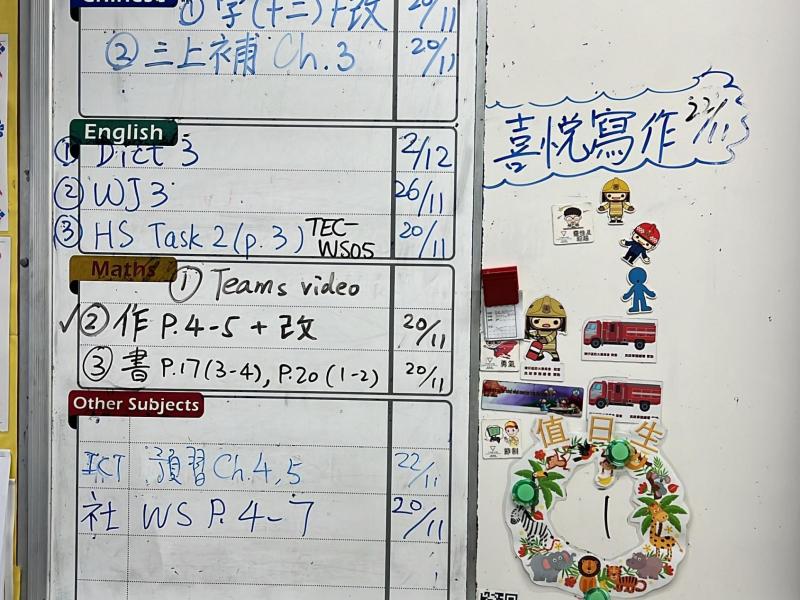 Chinese
① 字(十二)+改 20/11
② 三上補 Ch.3 20/11
English
① Dict 3 2/12
② WJ 3 26/11
③ HS Task 2 (p.3) TEC-WS05 20/11
Maths
① Teams video
✓② 作 P.4-5 + 改 20/11
③ 書 P.17(3-4), P.20 (1-2) 20/11
Other Subjects
ICT 預習 Ch.4,5 22/11
社 WS P.4-7 20/11
喜悅寫作 22/11
勇氣
節制
值日生
1